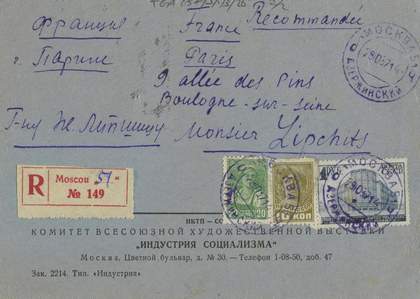 Recommandée
Франция
France
г. Париж
Paris
9 allée des Pins
Boulogne-sur-seine
Г-ну Ж. Липшицу
Monsier Lipchits
R
Moscou "51"
№ 149
20
НКТП
КОМИТЕТ ВСЕСОЮЗНОЙ ХУДОЖЕСТВЕННОЙ ВЫСТАВКИ
„ИНДУСТРИЯ СОЦИАЛИЗМА"
Москва. Цветной бульвар, д. № 30. — Телефон 1-08-50, доб. 47
Зак. 2214. Тип. «Индустрия»